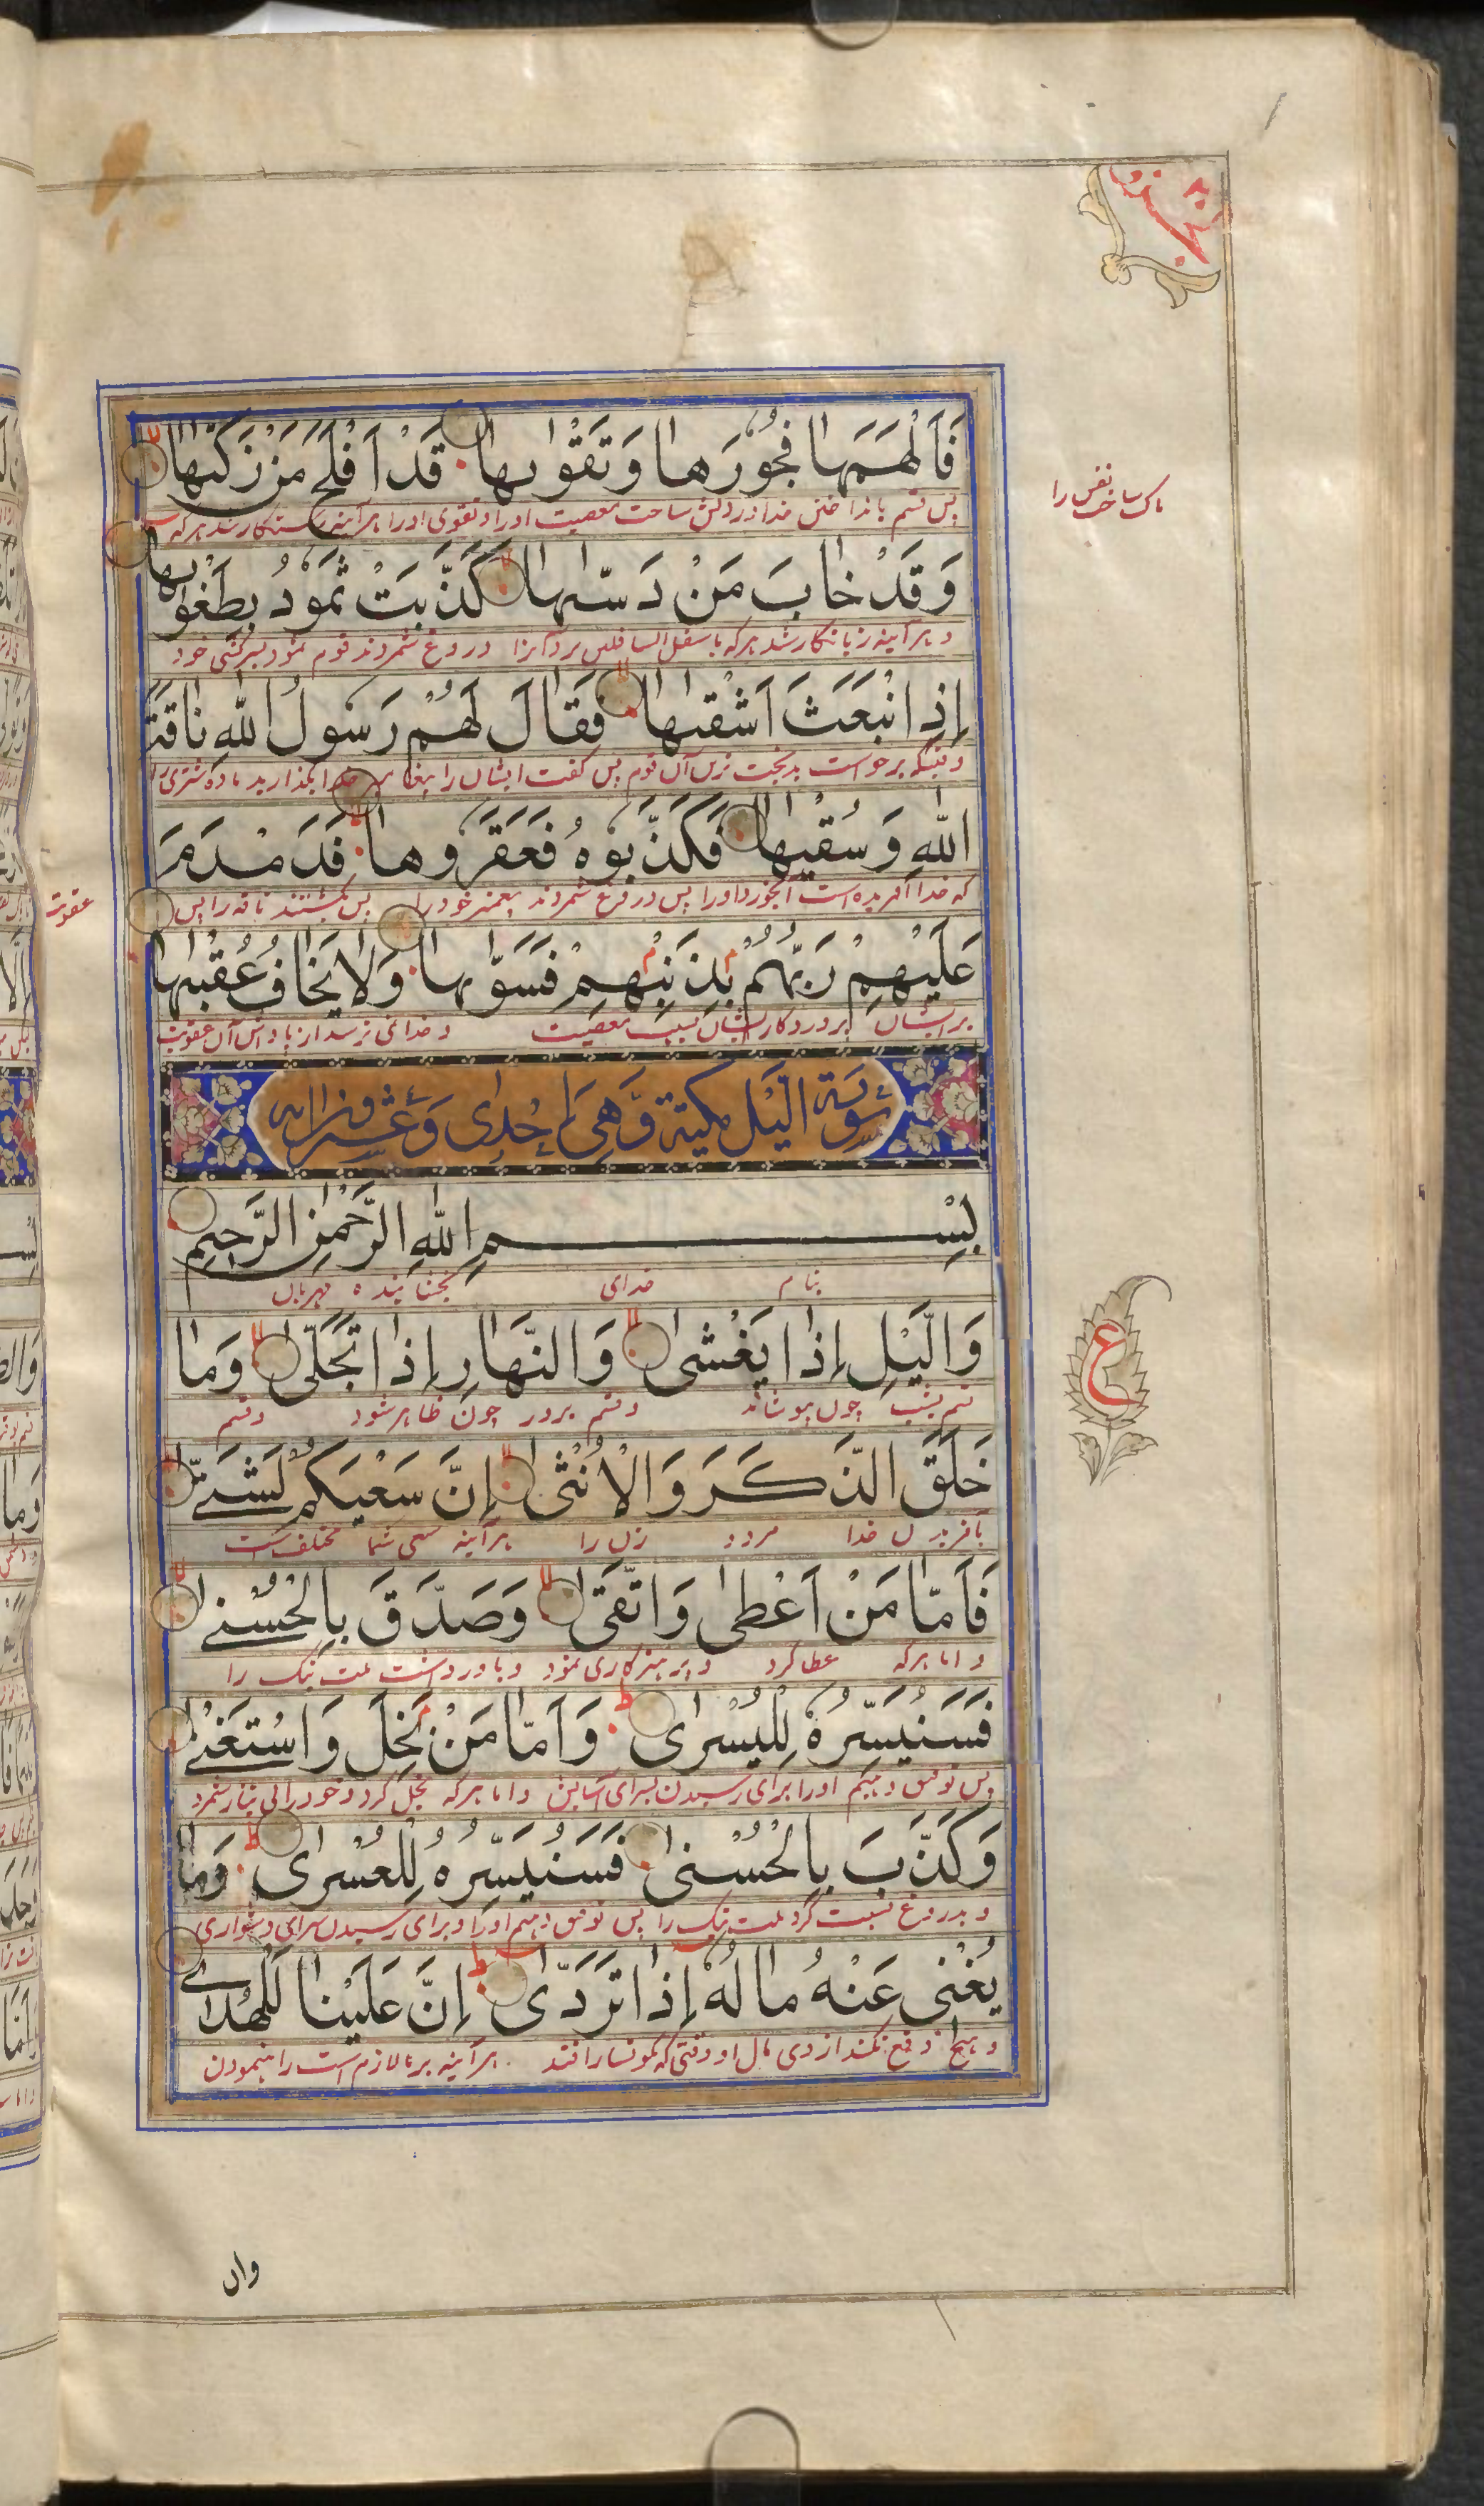 فَاَلْهَمَهٰا فُجُوْرَهٰا وَتَقْوٰىهٰا قَدْ اَفْلَحَ مَنْ زَكّٰىهٰا
پس قسم بانداختن خدا در دلش ساخت معصیت او را و تقوی او را هرآینه رستگار شد هر که
پاک ساخت نفس را
وَقَدْ خٰابَ مَنْ دَسّٰىهٰا كَذَّبَتْ ثَمُوْدُ بِطَغْوٰىهٰا
و هرآینه زیانکار شد هر که باسفل السافلین برد آنرا دروغ شمردند قوم ثمود بسرکشی خود
اِذِ انْبَعَثَ اَشْقٰىهٰا فَقٰالَ لَهُمْ رَسُوْلُ اللّٰهِ نٰاقَةَ
وقتیکه برخواست بدبخت ترین آن قوم پس گفت ایشان را پیغامبر خدا بگذارید ماده شتری را
اللّٰهِ وَسُقْيٰهٰا فَكَذَّبُوْهُ فَعَقَرُوْهٰا فَدَمْدَمَ
که خدا آفریده است آبخورد او را پس دروغ شمردند پیغمبر خود را پس بکشتند ناقه را پس
عقوبت
عَلَيْهِمْ رَبُّهُمْ بِذَنْبِهِمْ فَسَوّٰىهٰا وَلٰا يَخٰافُ عُقْبٰىهٰا
بر ایشان پروردگار ایشان بسبب معصیت و خدا نمی ترسد از پاداش آن عقوبت
سُوْرَة الَّيْل مكية وَّهِىَ اِحْدٰى وَعشرون اٰية
بِسْمِ اللّٰهِ الرَّحْمٰنِ الرَّحِيْمِ
بنام خدای بخشاینده مهربان
وَالَّيْلِ اِذٰا يَغْشٰى وَالنَّهٰارِ اِذٰا تَجَلّٰى وَمٰا
قسم بشب چون بپوشاند و قسم بروز چون ظاهر شود و قسم
خَلَقَ الذَّكَرَ وَالْاُنْثٰى اِنَّ سَعْيَكُمْ لَشَتّٰى
بآفریدن خدا مرد و زن را هرآینه سعی شما مختلف است
ع
فَاَمّٰا مَنْ اَعْطٰى وَاتَّقٰى وَصَدَّقَ بِالْحُسْنٰى
و اما هر که عطا کرد و پرهیزکاری نمود و باور داشت ملت نیک را
فَسَنُيَسِّرُهٗ لِلْيُسْرٰى وَاَمّٰا مَنْ بَخِلَ وَاسْتَغْنٰى
پس توفیق دهیم او را برای رسیدن بسرای آسایش و اما هر که بخل کرد و خود را بی نیاز شمرد
وَكَذَّبَ بِالْحُسْنٰى فَسَنُيَسِّرُهٗ لِلْعُسْرٰى وَمٰا
و بدروغ نسبت کرد ملت نیک را پس توفیق دهیم او را و برای رسیدن سرای دشواری
يُغْنِىْ عَنْهُ مٰالُهٗ اِذٰا تَرَدّٰى اِنَّ عَلَيْنٰا لَلْهُدٰى
و هیچ دفع نکند از وی مال او وقتی که نگونسار افتد هرآینه بر ما لازم است راهنمودن
وان